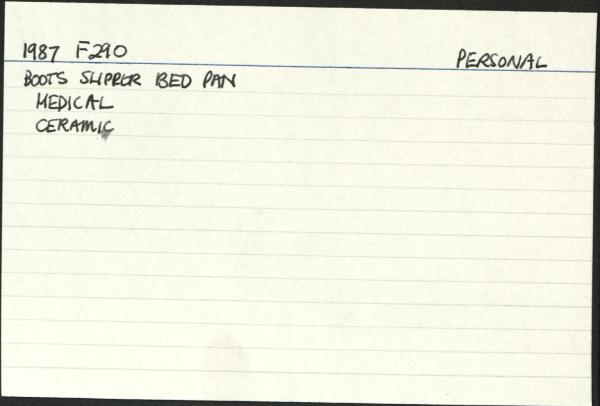 1987 F290 PERSONAL
BOOTS SLIPPER BED PAN
MEDICAL
CERAMIC